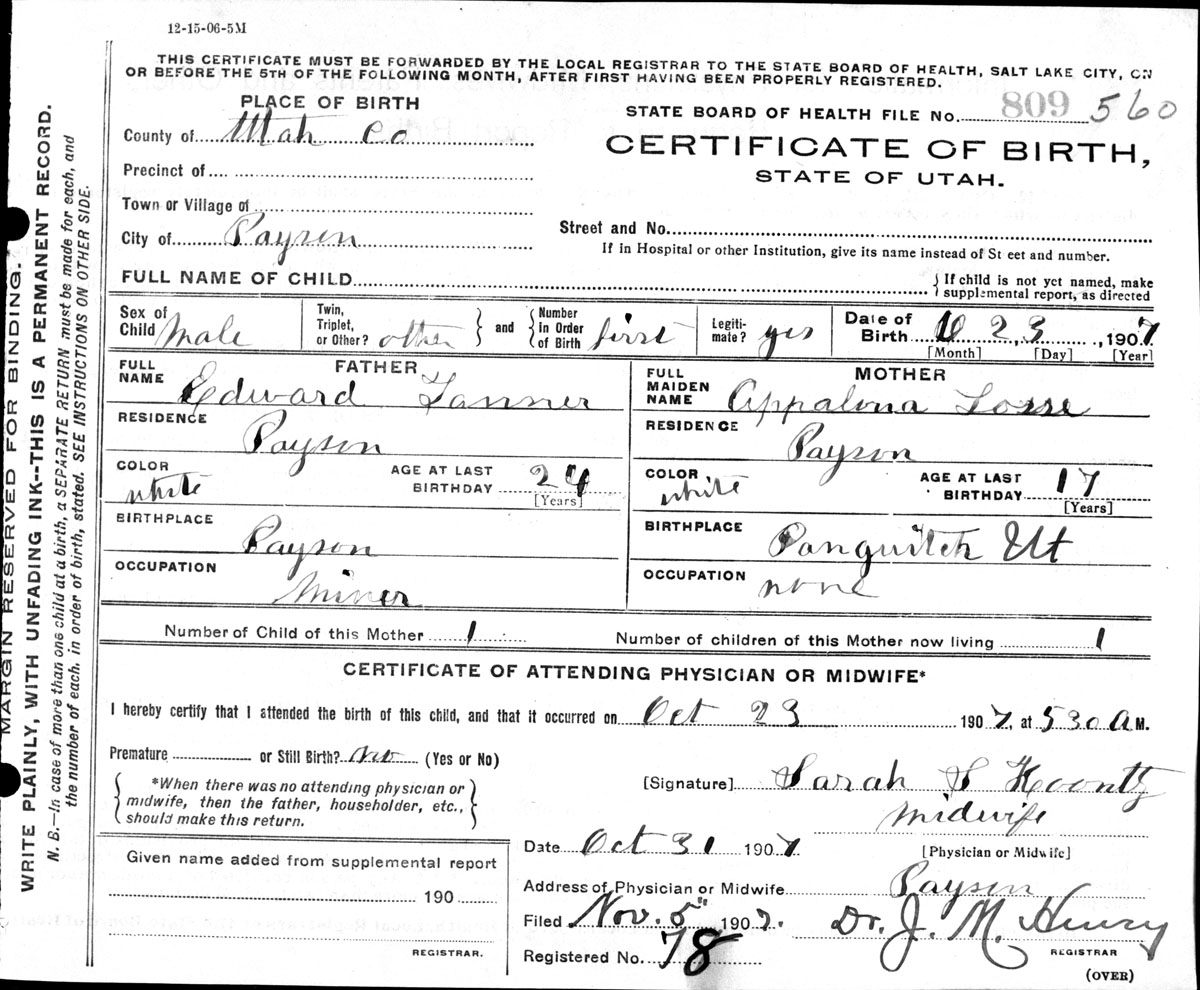 12-15-06-5M
THIS CERTIFICATE MUST BE FORWARDED BY THE LOCAL REGISTRAR TO THE STATE BOARD OF HEALTH, SALT LAKE CITY, ON
OR BEFORE THE 5TH OF THE FOLLOWING MONTH, AFTER FIRST HAVING BEEN PROPERLY REGISTERED.
MARGIN RESERVED FOR BINDING.
WRITE PLAINLY, WITH UNFADING INK--THIS IS A PERMANENT RECORD.
N. B.—In case of more than one child at a birth, a SEPARATE RETURN must be made for each, and
the number of each, in order of birth, stated. SEE INSTRUCTIONS ON OTHER SIDE.
PLACE OF BIRTH
County of Utah Co
Precinct of
Town or Village of
City of Payson
STATE BOARD OF HEALTH FILE No. 809 560
CERTIFICATE OF BIRTH,
STATE OF UTAH.
Street and No.
If in Hospital or other Institution, give its name instead of St eet and number.
FULL NAME OF CHILD
} If child is not yet named, make
supplemental report, as directed
Sex of Child Male
Twin, Triplet, or Other? other } and { Number in Order of Birth first
Legiti- mate? yes
Date of Birth 10 23, 1907
[Month] [Day] [Year]
FATHER
FULL NAME Edward Tanner
RESIDENCE Payson
COLOR white AGE AT LAST BIRTHDAY 24
[Years]
BIRTHPLACE Payson
OCCUPATION Miner
MOTHER
FULL MAIDEN NAME Appalona Losse
RESIDENCE Payson
COLOR white AGE AT LAST BIRTHDAY 17
[Years]
BIRTHPLACE Panguitch Ut
OCCUPATION none
Number of Child of this Mother 1 Number of children of this Mother now living 1
CERTIFICATE OF ATTENDING PHYSICIAN OR MIDWIFE*
I hereby certify that I attended the birth of this child, and that it occurred on Oct 23 1907, at 530 A M.
Premature or Still Birth? No (Yes or No)
{ *When there was no attending physician or
midwife, then the father, householder, etc.,
should make this return. }
[Signature] Sarah S Koontz
Midwife
[Physician or Midwife]
Date Oct 31 1907
Address of Physician or Midwife Payson
Filed Nov. 5" 1907. Dr. J. M. Henry
REGISTRAR
Registered No. 78
(OVER)
Given name added from supplemental report
190
REGISTRAR.